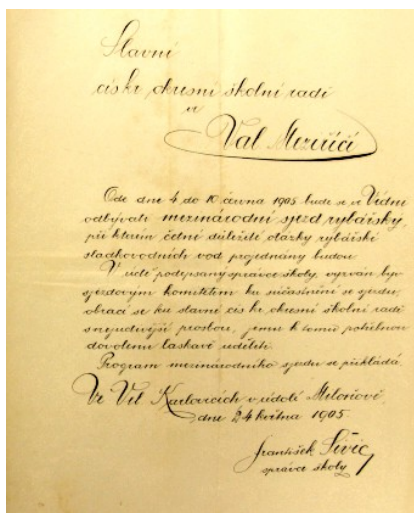 Slavní
cís kr okresní školní radě
ve
Val Meziříčí
Ode dne 4 do 10 června 1905 bude se ve Vídni
odbývati mezinárodní sjezd rybářský,
při kterém četné důležité otázky rybářské
sladkovodních vod projednány budou
V úctě podepsaný správce školy, vyzván byv
sjezdovým komitétem ku súčasnění se sjezdu,
obrací se ku slavné cís kr okresní školní radě
s nejuctivější prosbou, jemu k tomu potřebnou
dovolenu laskavě uděliti.
Program mezinárodního sjezdu se přikládá.
Ve Vel Karlovicích v údolí Miloňově,
dne 24 května 1905.
František Sivic,
správce školy